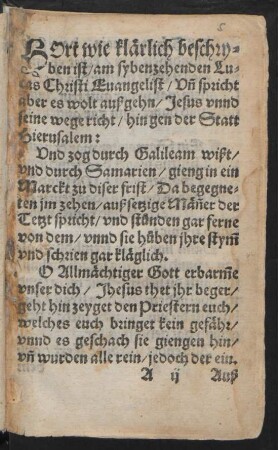 5
HOrt wie klärlich beschry-
ben ist/ am sybenzehenden Lu-
cas Christi Euangelist/ Vñ spricht
aber es wolt auß gehn/ Jesus vnnd
seine wege richt/ hin gen der Statt
Hierusalem:
Vnd zog durch Galileam wißt/
vnd durch Samarien/ gieng in ein
Marckt zu diser frist/ Da begegne-
ten jm zehen/ auß setzige Mäñer der
Tetzt spricht/ vnd stůnden gar ferne
von dem/ vnnd sie hůben jhre stym̃
vnd schrien gar kläglich.
O Allmächtiger Gott erbarm̃e
vnser dich/ Jhesus thet jhr beger/
geht hin zeyget den Priestern euch/
welches euch bringet kein gefähr/
vnnd es geschach sie giengen hin/
vñ wurden alle rein/ jedoch der ein.
A ij Auß